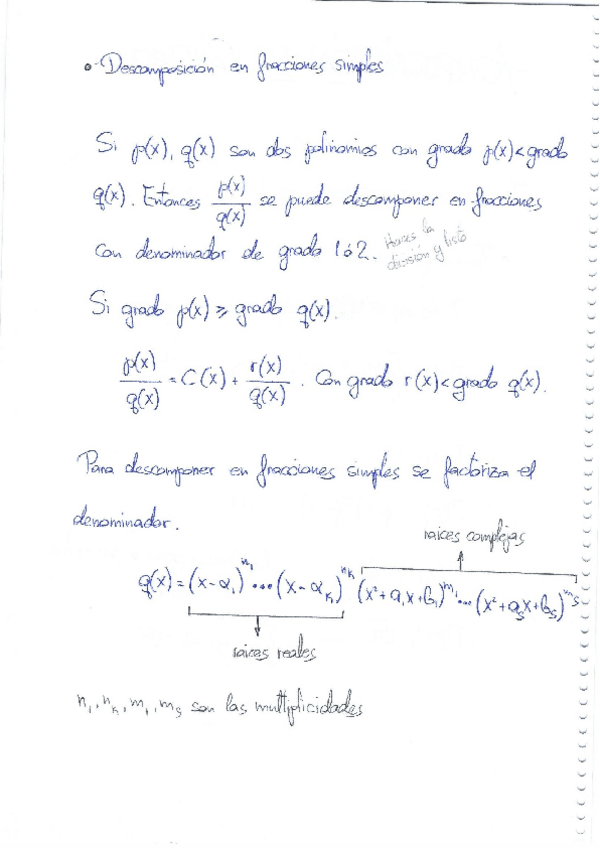 • Descomposición en fracciones simples
Si p(x), q(x) son dos polinomios con grado p(x)<grado
q(x). Entonces p(x)/q(x) se puede descomponer en fracciones
con denominador de grado 1 ó 2. Haces la
división y listo
Si grado p(x) ≥ grado q(x).
p(x)/q(x) = C(x) + r(x)/q(x). Con grado r(x)<grado q(x).
Para descomponer en fracciones simples se factoriza el
denominador.
raices complejas
q(x) = (x-α₁)^n₁ ... (x-α_k)^n_k (x²+a₁x+b₁)^m₁ ... (x²+a_s x+b_s)^m_s
raices reales
n₁, n_k, m₁, m_s son las multiplicidades